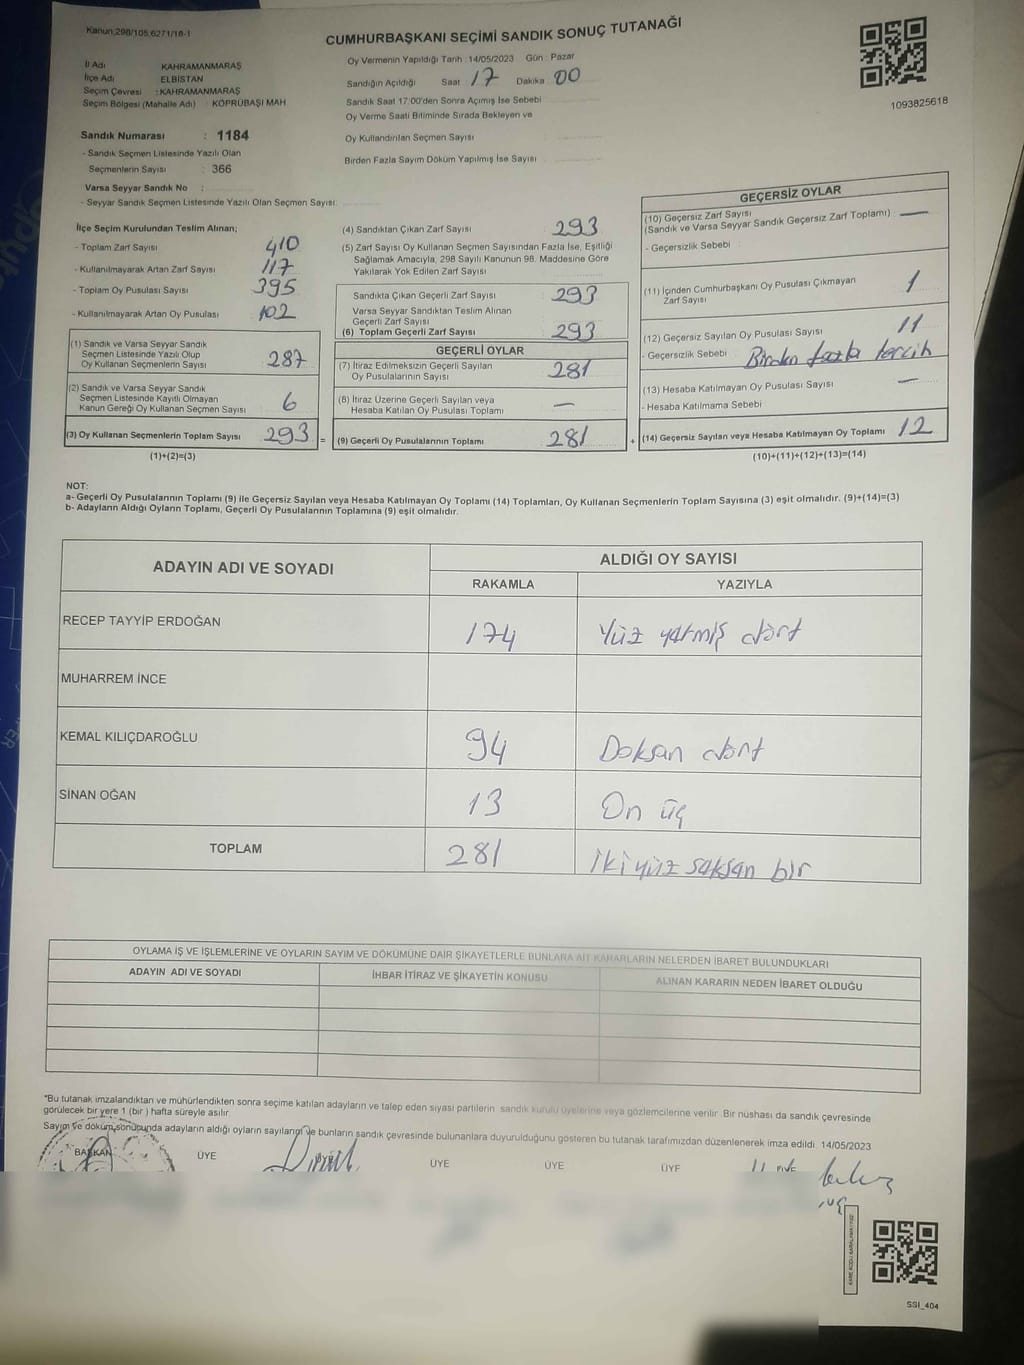 Kanun,298/105,6271/18-1
CUMHURBAŞKANI SEÇİMİ SANDIK SONUÇ TUTANAĞI
1093825618
İl Adı KAHRAMANMARAŞ
İlçe Adı ELBİSTAN
Seçim Çevresi : KAHRAMANMARAŞ
Seçim Bölgesi (Mahalle Adı) : KÖPRÜBAŞI MAH
Sandık Numarası : 1184
- Sandık Seçmen Listesinde Yazılı Olan
Seçmenlerin Sayısı : 366
Varsa Seyyar Sandık No :
- Seyyar Sandık Seçmen Listesinde Yazılı Olan Seçmen Sayısı:
Oy Vermenin Yapıldığı Tarih :14/05/2023 Gün : Pazar
Sandığın Açıldığı Saat 17 Dakika 00
Sandık Saat 17:00'den Sonra Açımış İse Sebebi
Oy Verme Saati Bitiminde Sırada Bekleyen ve
Oy Kullandırılan Seçmen Sayısı
Birden Fazla Sayım Döküm Yapılmış İse Sayısı
İlçe Seçim Kurulundan Teslim Alınan;
- Toplam Zarf Sayısı 410
- Kullanılmayarak Artan Zarf Sayısı 117
- Toplam Oy Pusulası Sayısı 395
- Kullanılmayarak Artan Oy Pusulası 102
(1) Sandık ve Varsa Seyyar Sandık
Seçmen Listesinde Yazılı Olup
Oy Kullanan Seçmenlerin Sayısı 287
(2) Sandık ve Varsa Seyyar Sandık
Seçmen Listesinde Kayıtlı Olmayan
Kanun Gereği Oy Kullanan Seçmen Sayısı 6
(3) Oy Kullanan Seçmenlerin Toplam Sayısı 293 =
(1)+(2)=(3)
(4) Sandıktan Çıkan Zarf Sayısı 293
(5) Zarf Sayısı Oy Kullanan Seçmen Sayısından Fazla İse, Eşitliği
Sağlamak Amacıyla, 298 Sayılı Kanunun 98. Maddesine Göre
Yakılarak Yok Edilen Zarf Sayısı
Sandıkta Çıkan Geçerli Zarf Sayısı 293
Varsa Seyyar Sandıktan Teslim Alınan
Geçerli Zarf Sayısı
(6) Toplam Geçerli Zarf Sayısı 293
GEÇERLİ OYLAR
(7) İtiraz Edilmeksizin Geçerli Sayılan
Oy Pusulalarının Sayısı 281
(8) İtiraz Üzerine Geçerli Sayılan veya
Hesaba Katılan Oy Pusulası Toplamı —
(9) Geçerli Oy Pusulalarının Toplamı 281 +
GEÇERSİZ OYLAR
(10) Geçersiz Zarf Sayısı —
(Sandık ve Varsa Seyyar Sandık Geçersiz Zarf Toplamı)
- Geçersizlik Sebebi :
(11) İçinden Cumhurbaşkanı Oy Pusulası Çıkmayan
Zarf Sayısı 1
(12) Geçersiz Sayılan Oy Pusulası Sayısı 11
- Geçersizlik Sebebi Birden fazla tercih
(13) Hesaba Katılmayan Oy Pusulası Sayısı —
- Hesaba Katılmama Sebebi
(14) Geçersiz Sayılan veya Hesaba Katılmayan Oy Toplamı 12
(10)+(11)+(12)+(13)=(14)
NOT:
a- Geçerli Oy Pusulalarının Toplamı (9) ile Geçersiz Sayılan veya Hesaba Katılmayan Oy Toplamı (14) Toplamları, Oy Kullanan Seçmenlerin Toplam Sayısına (3) eşit olmalıdır. (9)+(14)=(3)
b- Adayların Aldığı Oyların Toplamı, Geçerli Oy Pusulalarının Toplamına (9) eşit olmalıdır.
ADAYIN ADI VE SOYADI ALDIĞI OY SAYISI
RAKAMLA YAZIYLA
RECEP TAYYİP ERDOĞAN 174 Yüz yetmiş dört
MUHARREM İNCE
KEMAL KILIÇDAROĞLU 94 Doksan dört
SİNAN OĞAN 13 On üç
TOPLAM 281 İki yüz seksen bir
OYLAMA İŞ VE İŞLEMLERİNE VE OYLARIN SAYIM VE DÖKÜMÜNE DAİR ŞİKAYETLERLE BUNLARA AİT KARARLARIN NELERDEN İBARET BULUNDUKLARI
ADAYIN ADI VE SOYADI İHBAR İTİRAZ VE ŞİKAYETİN KONUSU ALINAN KARARIN NEDEN İBARET OLDUĞU
*Bu tutanak imzalandıktan ve mühürlendikten sonra seçime katılan adayların ve talep eden siyasi partilerin sandık kurulu üyelerine veya gözlemcilerine verilir. Bir nüshası da sandık çevresinde
görülecek bir yere 1 (bir ) hafta süreyle asılır
Sayım ve döküm sonucunda adayların aldığı oyların sayılarını ve bunların sandık çevresinde bulunanlara duyurulduğunu gösteren bu tutanak tarafımızdan düzenlenerek imza edildi. 14/05/2023
BAŞKAN ÜYE ÜYE ÜYE ÜYE ÜYE
SSI_404